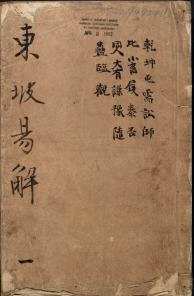 乾坤屯需訟師
比小畜履泰否
大有謙豫隨
蠱臨觀
東坡易解 一